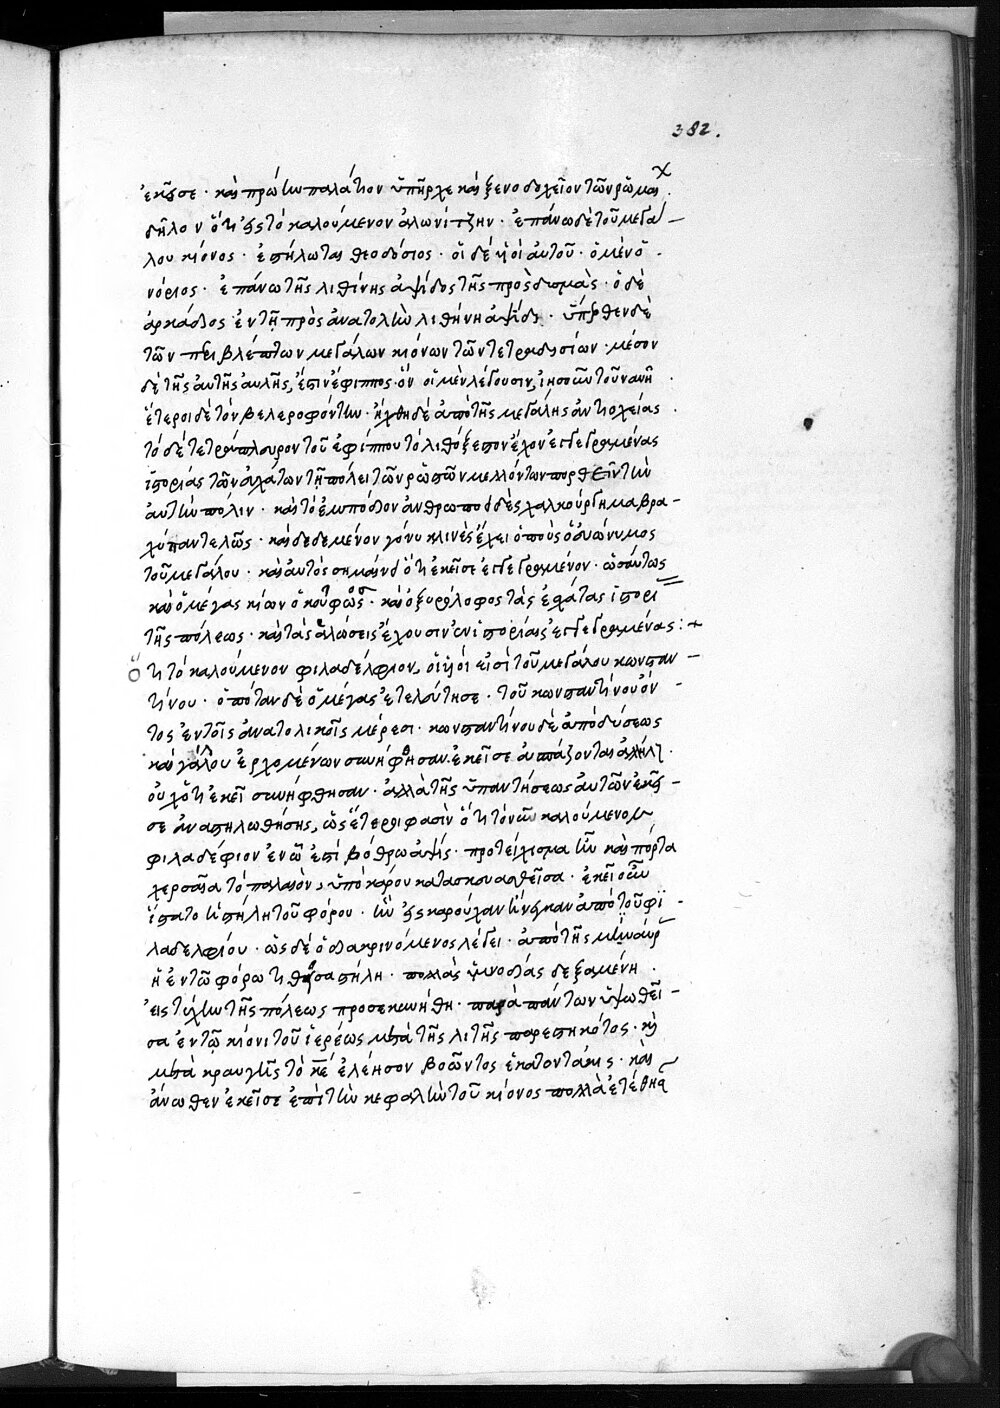 382.
ἐκεῖσε · καὶ πρώτην παλάτιον ὑπῆρχε καὶ ξενοδοχεῖον τῶν ῥωμαί
δῆλον ὅτι εἰς τὸ καλούμενον ἁλωνίτζην · ἐπάνω δὲ τοῦ μεγά
λου κίονος · ἐστήλωται θεοδόσιος · οἱ δὲ υἱοὶ αὐτοῦ · ὁ μὲν ὀ
νόριος · ἐπάνω τῆς λιθίνης ἁψίδος τῆς πρὸς δυσμὰς · ὁ δὲ
ἀρκάδιος ἐν τῇ πρὸς ἀνατολὴν λιθίνη ἁψίδι · ὕπερθεν δὲ
τῶν περιβλέπτων μεγάλων κιόνων τῶν τετραδησίων · μέσον
δὲ τῆς αὐτῆς αὐλῆς, ἔστιν ἔφιππος · ὃν οἱ μὲν λέγουσιν, ἰησοῦν τοῦ ναυῆ
ἕτεροι δὲ τὸν βελεροφόντην · ἤχθη δὲ ἀπὸ τῆς μεγάλης ἀντιοχείας
τὸ δὲ τετράπλευρον τοῦ ἐφίππου τὸ λιθόξεστον ἔχον ἐγγεγραμμένας
ἱστορίας τῶν ἐσχάτων τῇ πόλει τῶν ῥωσῶν μελλόντων πορθεῖν τὴν
αὐτὴν πόλιν · καὶ τὸ ἐμπόδιον ἀνθρωποειδὲς χαλκούργημα βρα
χὺ παντελῶς · καὶ δεδεμένον γόνυ κλινὲς ἔχει ὁ ποὺς ὁ εὐώνυμος
τοῦ μεγάλου · καὶ αὐτὸς σημαίνει ὅτι ἐκεῖσε ἐγγεγραμμένον · ὡσαύτως
καὶ ὁ μέγας κίων ὁ κοῦφος · καὶ ὁ ξυρόλοφος τὰς ἐσχάτας ἱστορί
τῆς πόλεως · καὶ τὰς ἁλώσεις ἔχουσιν ἐνιστορίαις ἐγγεγραμμένας :+
Ὅτι τὸ καλούμενον φιλαδέλφιον, οἱ υἱοί εἰσὶ τοῦ μεγάλου κωνσταν
τίνου · ὁπόταν δὲ ὁ μέγας ἐτελεύτησε · τοῦ κωνσταντίνου ὄν
τος ἐν τοῖς ἀνατολικοῖς μέρεσι · κωνσταντίνου δὲ ἀπὸ δύσεως
καὶ γάλλου ἐρχομένων συνήφθησαν ἐκεῖσε ἀσπάζονται ἀλλήλ
οὐχ ὅτι ἐκεῖ συνήφθησαν · ἀλλὰ τῆς ὑπαντήσεως αὐτῶν ἐκεῖ
σε ἀναστηλωθήσης, ὡς ἕτεροι φασὶν ὅτι τὸ νῦν καλούμενον
φιλαδέφιον ἐν ᾧ ἐπὶ βόθρω ἁψίς · προτείχισμα ἦν καὶ πόρτα
χερσαία τὸ παλαιὸν, ὑπὸ κάρου κατασκευασθεῖσα · ἐκεῖ οὖν
ἵστατο ἡ στήλη τοῦ φόρου · ἣν εἰς καρούχαν ἤνεγκαν ἀπὸ τοῦ φι
λαδελφίου · ὡς δὲ ὁ διακρινόμενος λέγει · ἀπὸ τῆς μαγναύρ
ἡ ἐν τῷ φόρω τιθεῖσα στήλη · πολλὰς ὑμνοδίας δεξαμένη
εἰς τύχην τῆς πόλεως προσεκυνήθη · παρὰ πάντων ὑψωθεῖ
σα ἐν τῷ κίονι τοῦ ἱερέως μετὰ τῆς λιτῆς παρεστηκότος · καὶ
μετὰ κραυγῆς τὸ κε ἐλέησον βοῶντος ἑκατοντάκις · καὶ
ἄνωθεν ἐκεῖσε ἐπὶ τὴν κεφαλὴν τοῦ κίονος πολλὰ ἐτέθησ